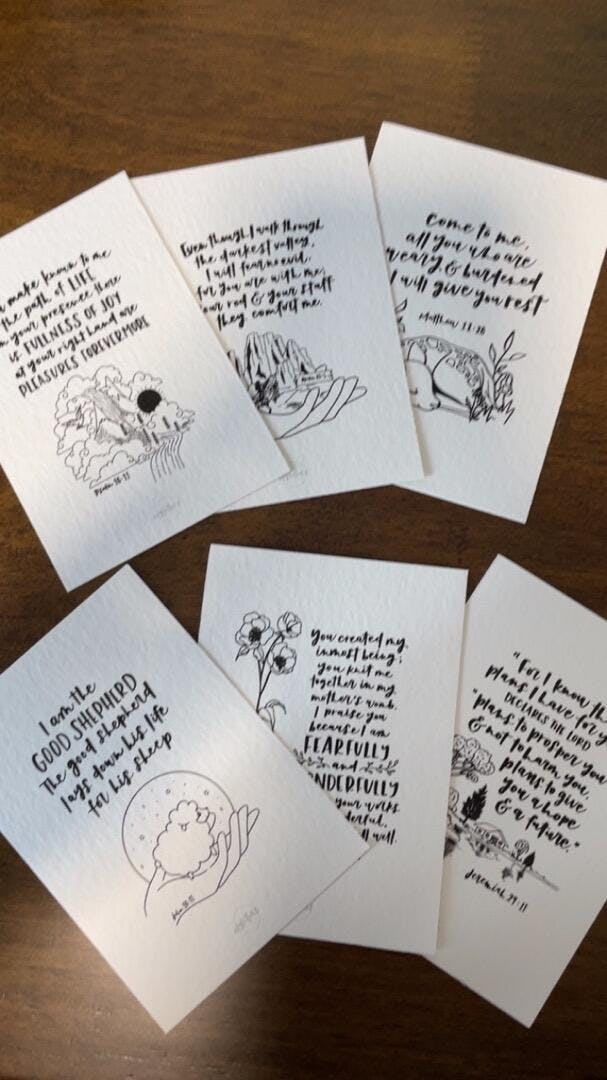 make known to me
the path of LIFE
your presence there
is FULLNESS OF JOY
at your right hand are
PLEASURES FOREVERMORE
Psalm 16:11
Even though I walk through
the darkest valley,
I will fear no evil,
for you are with me;
your rod & your staff
they comfort me.
Come to me,
all you who are
weary & burdened
I will give you rest
Matthew 11:28
I am the
GOOD SHEPHERD
The good shepherd
lays down his life
for his sheep
John 10:11
You created my
inmost being;
you knit me
together in my
mother's womb.
I praise you
because I am
FEARFULLY
and
ONDERFULLY
your works
derful,
well.
"For I know the
plans I have for y
DECLARES THE LORD
"plans to prosper you
& not to harm you,
plans to give
you a hope
& a future."
Jeremiah 29:11